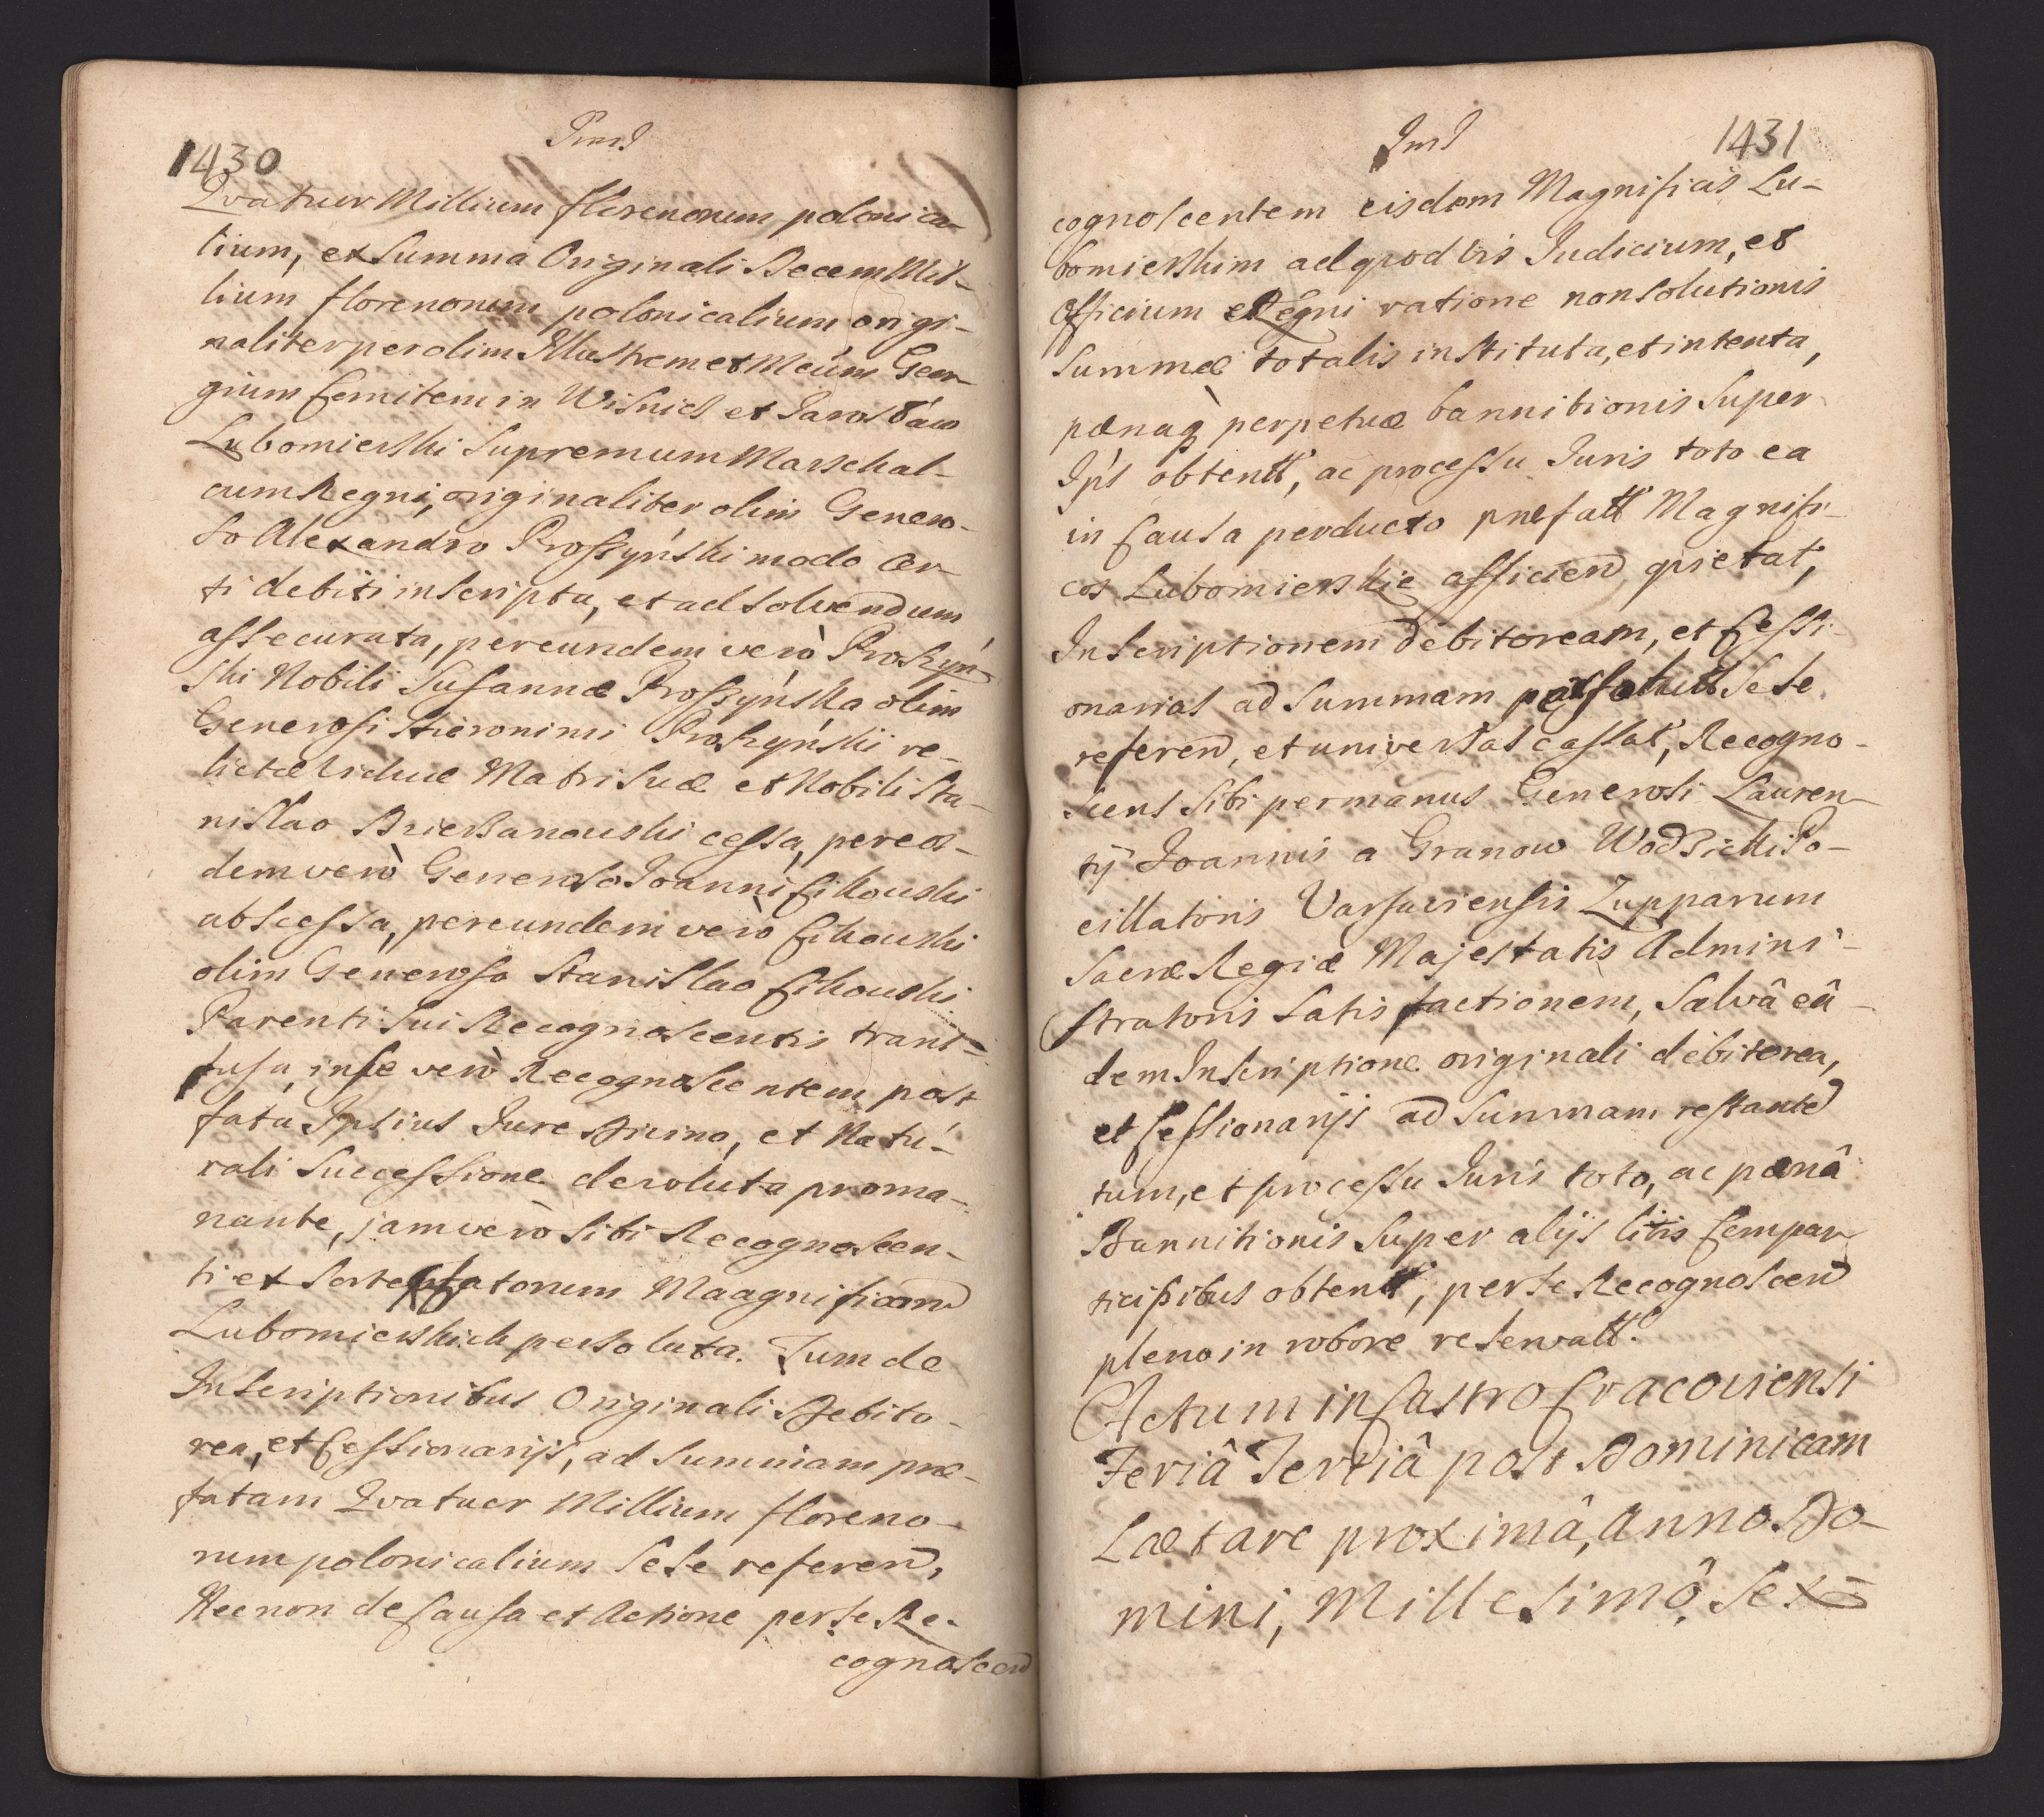 1430
Qvatuor Millium florenorum polonica-
lium, ex Summa Originali Decem Mil-
lium florenorum polonicalium origi-
naliter per olim Illustrem et Mcum Geor-
gium Comitem in Wisnicz et Jaroslaw
Lubomierski Supremum Marschal-
cum Regni, originaliter olim Genero-
so Alexandro Proszyński modo cer-
ti debiti inscripta, et ad solvendum
assecurata, per eundem verò Proszyń-
ski Nobili Susannæ Proszyńska olim
Generosi Hieronimi Proszyński re-
lictæ Viduæ Matri suæ et Nobili Sta-
nislao Brzezanowski cessa, per eos-
dem verò Generoso Joanni Cikowski
abscessa, per eundem verò Cikowski
olim Generoso Stanislao Cikowski
Parenti sui Recognoscentis trans-
fusa, in se verò Recognoscentem post
fata Ipsius Jure divino, et Natu-
rali Successione devoluta proma-
nante, jam verò sibi Recognoscen-
ti ex Sorte pfatorum Maagnificord
Lubomierskich persoluta. Tum de
Inscriptionibus Originali Debito-
rea, et Cessionarijs, ad Summam præ-
fatam Qvatuor Millium floreno-
rum polonicalium sese referend,
Necnon de Causa et Actione per se Re-
cognoscend
1431
cognoscentem eisdem Magnificis Lu-
bomierskim ad qvod vis Judicium, et
Officium Regni ratione non solutionis
Summæ totalis instituta, et intenta,
pænaq perpetuæ bannitionis super
Ips obtentt, ac processu Juris toto ea
in Causa perducto præfatt Magnifi-
cos Lubomierskie afficiend qvietat,
Inscriptionem debitoream, et Cessi-
onarias ad Summam sese
referend, et universas cassat, Recogno-
scens sibi per manus Generosi Lauren-
tij Joannis a Granow Wodzicki Po-
cillatoris Varsaviensis Zupparum
Sacræ Regiæ Majestatis Admini-
stratoris satisfactionem, Salvâ eâ-
dem Inscriptione originali debitorea,
et Cessionarijs ad Summam restante
tum, et processu Juris toto, ac pænâ
Bannitionis super alijs litis Compar-
ticipibus obtentt, per se Recognoscend
pleno in robore reservatt.
Actum in Castro Cracoviensi
Feriâ Tertiâ post Dominicam
Lætare proximâ, Anno Do-
mini, Millesimô, Sex